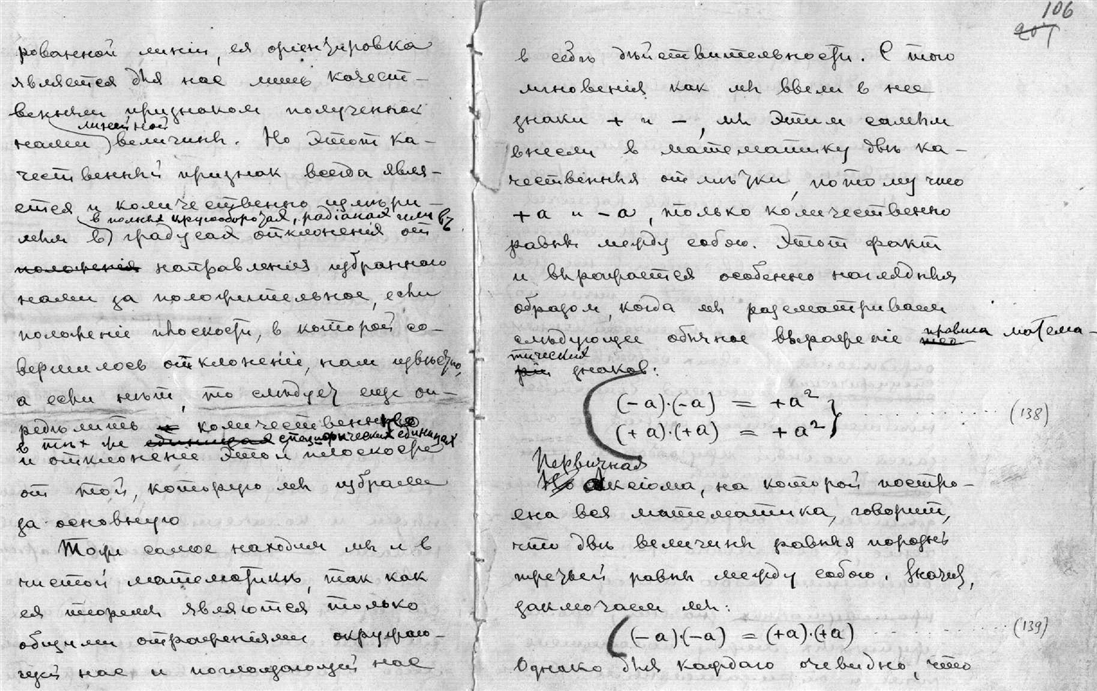 рованной линіи, ея оріентировка
является для нас лишь качест-
венным признаком полученной
линейной
нами величины. Но этот ка-
чественный признак всегда явля-
ется и количественно измѣри-
в полных кругооборотах, радіанах или въ
мым в градусах отклоненія от
положенія направленія избраннаго
нами за положительное, если
положеніе плоскости, в которой со-
вершилось отклоненіе, нам извѣстно,
а если нѣт, то слѣдует еще оп-
редѣлить количественно
в тѣх же единицах специфических единицах
и отклоненіе этой плоскости
от той, которую мы избрали
за основную
Тоже самое находим мы и в
чистой математикѣ, так как
ея теоремы являются только
общими отраженіями окружаю-
щей нас и поглощающей нас
106
201
в себѣ дѣйствительности. С того
мгновенія как мы ввели в нее
знаки + и –, мы этим самым
внесли в математику двѣ ка-
чественныя отмѣтки, потому что
+a и –a, только количественно
равны между собою. Этот факт
и выражается особенно наглядным
образом, когда мы разсматриваем
слѣдующее обычное выраженіе правила матема-
тических
знаков:
(–a)·(–a) = +a²
(+a)·(+a) = +a² (138)
Первичная
Но аксіома, на которой постро-
ена вся математика, говорит,
что двѣ величины равныя порознь
третьей равны между собою. Значит,
заключаем мы:
(–a)·(–a) = (+a)·(+a) (139)
Однако для каждаго очевидно, что